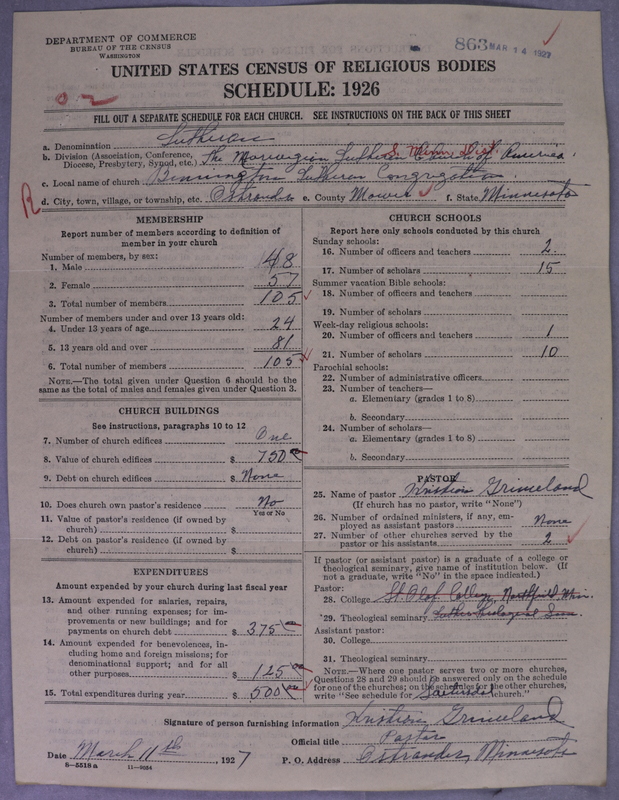 DEPARTMENT OF COMMERCE
BUREAU OF THE CENSUS
WASHINGTON
863 MAR 14 1927
UNITED STATES CENSUS OF RELIGIOUS BODIES
SCHEDULE: 1926
FILL OUT A SEPARATE SCHEDULE FOR EACH CHURCH. SEE INSTRUCTIONS ON THE BACK OF THIS SHEET
a. Denomination Lutheran
S. Minn. Dist.
b. Division (Association, Conference, Diocese, Presbytery, Synod, etc.) The Norwegian Lutheran Church of America
c. Local name of church Bennington Lutheran Congregation
d. City, town, village, or township, etc. Ostrander e. County Mower f. State Minnesota
R
MEMBERSHIP
Report number of members according to definition of member in your church
Number of members, by sex:
1. Male 48
2. Female 57
3. Total number of members 105
Number of members under and over 13 years old:
4. Under 13 years of age 24
5. 13 years old and over 81
6. Total number of members 105
NOTE.—The total given under Question 6 should be the same as the total of males and females given under Question 3.
CHURCH BUILDINGS
See instructions, paragraphs 10 to 12
7. Number of church edifices One
8. Value of church edifices $ 750.00
9. Debt on church edifices $ None
10. Does church own pastor's residence? No
Yes or No
11. Value of pastor's residence (if owned by church) $
12. Debt on pastor's residence (if owned by church) $
EXPENDITURES
Amount expended by your church during last fiscal year
13. Amount expended for salaries, repairs, and other running expenses; for improvements or new buildings; and for payments on church debt $ 375.00
14. Amount expended for benevolences, including home and foreign missions; for denominational support; and for all other purposes $ 125.00
15. Total expenditures during year $ 500.00
CHURCH SCHOOLS
Report here only schools conducted by this church
Sunday schools:
16. Number of officers and teachers 2
17. Number of scholars 15
Summer vacation Bible schools:
18. Number of officers and teachers
19. Number of scholars
Week-day religious schools:
20. Number of officers and teachers 1
21. Number of scholars 10
Parochial schools:
22. Number of administrative officers
23. Number of teachers—
a. Elementary (grades 1 to 8)
b. Secondary
24. Number of scholars—
a. Elementary (grades 1 to 8)
b. Secondary
PASTOR
25. Name of pastor Kristian Grimeland
(If church has no pastor, write "None")
26. Number of ordained ministers, if any, employed as assistant pastors None
27. Number of other churches served by the pastor or his assistants 2
If pastor (or assistant pastor) is a graduate of a college or theological seminary, give name of institution below. (If not a graduate, write "No" in the space indicated.)
Pastor:
28. College St. Olaf College, Northfield, Minn.
29. Theological seminary Luther Theological Sem.
Assistant pastor:
30. College
31. Theological seminary
NOTE.—Where one pastor serves two or more churches, Questions 28 and 29 should be answered only on the schedule for one of the churches; on the schedules for the other churches, write "See schedule for church."
Signature of person furnishing information Kristian Grimeland
Official title Pastor
Date March 11th, 1927 P. O. Address Ostrander, Minnesota
8—5518a 11—9084